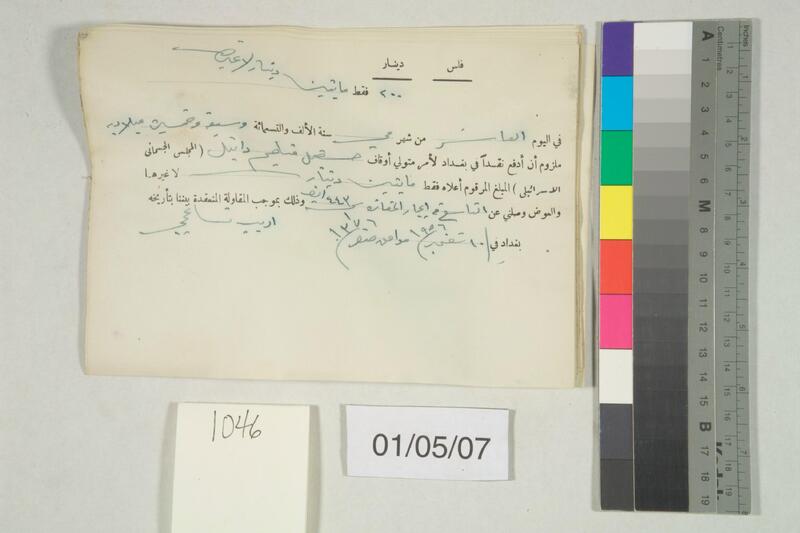 فلس دينار
٢٠٠ فقط مايتين دينار لا غير
في اليوم العاشر من شهر مي سنة الألف والتسمائة وسبعة وخمسين ميلادية
ملزوم أن أدفع نقداً في بغداد لأمر متولي أوقاف منحيم دانيل ( المجلس الجسماني
الاسرائيلي ) المبلغ المرقوم أعلاه فقط مايتين دينار لا غيرها
والعوض وصلني عن ايجار ٤٤٣ وذلك بموجب المقاولة المنعقدة بيننا بتأريخه
بغداد في ١٠ / ١٩٥٦ موافق صفر / ١٣٧٦
اديب
1046
01/05/07
Inches
Centimetres
A 1 2 3 4 5 6 M 8 9 10 11 12 13 14 15 B 17 18 19
Kodak